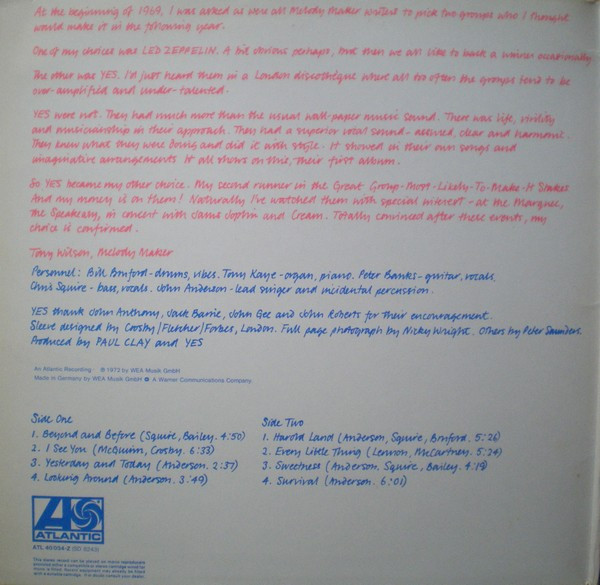 At the beginning of 1969, I was asked as were all Melody Maker writers to pick two groups who I thought
would make it in the following year.
One of my choices was LED ZEPPELIN. A bit obvious perhaps, but then we all like to back a winner occasionally.
The other was YES. I'd just heard them in a London discothèque where all too often the groups tend to be
over-amplified and under-talented.
YES were not. They had much more than the usual wall-paper music sound. There was life, virility
and musicianship in their approach. They had a superior vocal sound - assured, clear and harmonic.
They knew what they were doing and did it with style. It showed in their own songs and
imaginative arrangements. It all shows on this, their first album.
So YES became my other choice. My second runner in the Great Group-Most-Likely-To-Make-It Stakes
And my money is on them! Naturally I've watched them with special interest - at the Marquee,
the Speakeasy, in concert with Janis Joplin and Cream. Totally convinced after these events, my
choice is confirmed.
Tony Wilson, Melody Maker
Personnel: Bill Bruford - drums, vibes. Tony Kaye - organ, piano. Peter Banks - guitar, vocals.
Chris Squire - bass, vocals. John Anderson - lead singer and incidental percussion.
YES thank John Anthony, Jack Barrie, John Gee and John Roberts for their encouragement.
Sleeve designed by Crosby/Fletcher/Forbes, London. Full page photograph by Nicky Wright. Others by Peter Saunders
Produced by PAUL CLAY and YES
An Atlantic Recording · ℗ 1972 by WEA Musik GmbH
Made in Germany by WEA Musik GmbH A Warner Communications Company
Side One
1. Beyond and Before (Squire, Bailey. 4:50)
2. I See You (McGuinn, Crosby. 6:33)
3. Yesterday and Today (Anderson. 2:37)
4. Looking Around (Anderson. 3:49)
Side Two
1. Harold Land (Anderson, Squire, Bruford. 5:26)
2. Every Little Thing (Lennon, McCartney. 5:24)
3. Sweetness (Anderson, Squire, Bailey. 4:19)
4. Survival (Anderson. 6:01)
ATLANTIC
ATL 40034-Z (SD 8243)